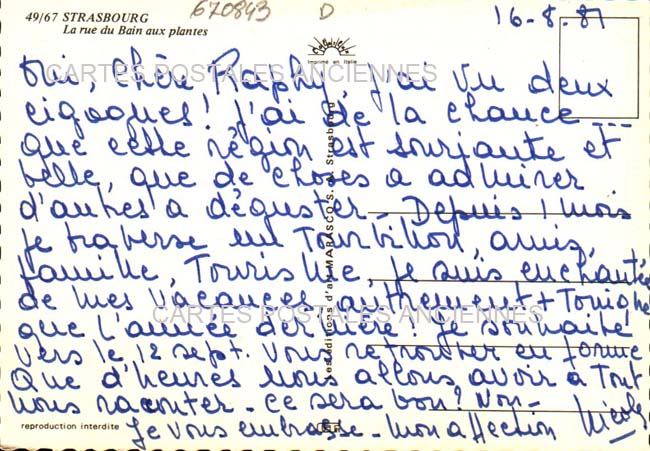 49/67 STRASBOURG
La rue du Bain aux plantes
670843
D
16-8.81
Imprimé en Italie
CARTES POSTALES ANCIENNES
Oui, Chère Raphy, j'ai vu deux
cigognes! J'ai de la chance ---
que cette région est souriante et
belle, que de choses a admirer
d'autres a déguster - Depuis 1 mois
je traverse un Tourbillon, amis,
famille, Tourisme, je suis enchantée
de mes vacances, autrement + Tonique
que l'année dernière! Je souhaite
vers le 12 sept. vous retrouver en forme
Que d'heures nous allons avoir à Tout
nous raconter - ce sera bon? Non -
Je vous embrasse - mon affection Nicole
CARTES POSTALES ANCIENNES
Les éditions d'art MARASCO S. A. Strasbourg
reproduction interdite